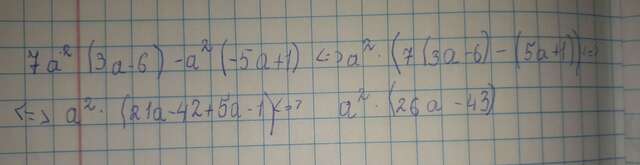 7a² (3a-6) -a² (-5a+1) <=> a² · (7 (3a-6) - (5a+1)) <=>
<=> a² · (21a-42+5a-1) <=> a² · (26a-43)